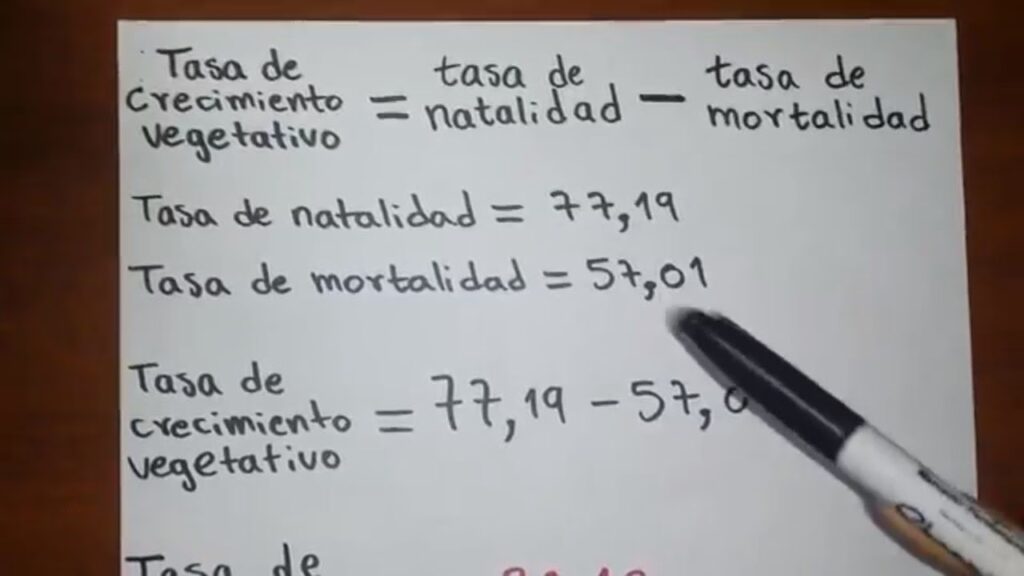 Tasa de
crecimiento = tasa de natalidad - tasa de mortalidad
vegetativo
Tasa de natalidad = 77,19
Tasa de mortalidad = 57,01
Tasa de
crecimiento = 77,19 - 57,0
vegetativo
Tasa de